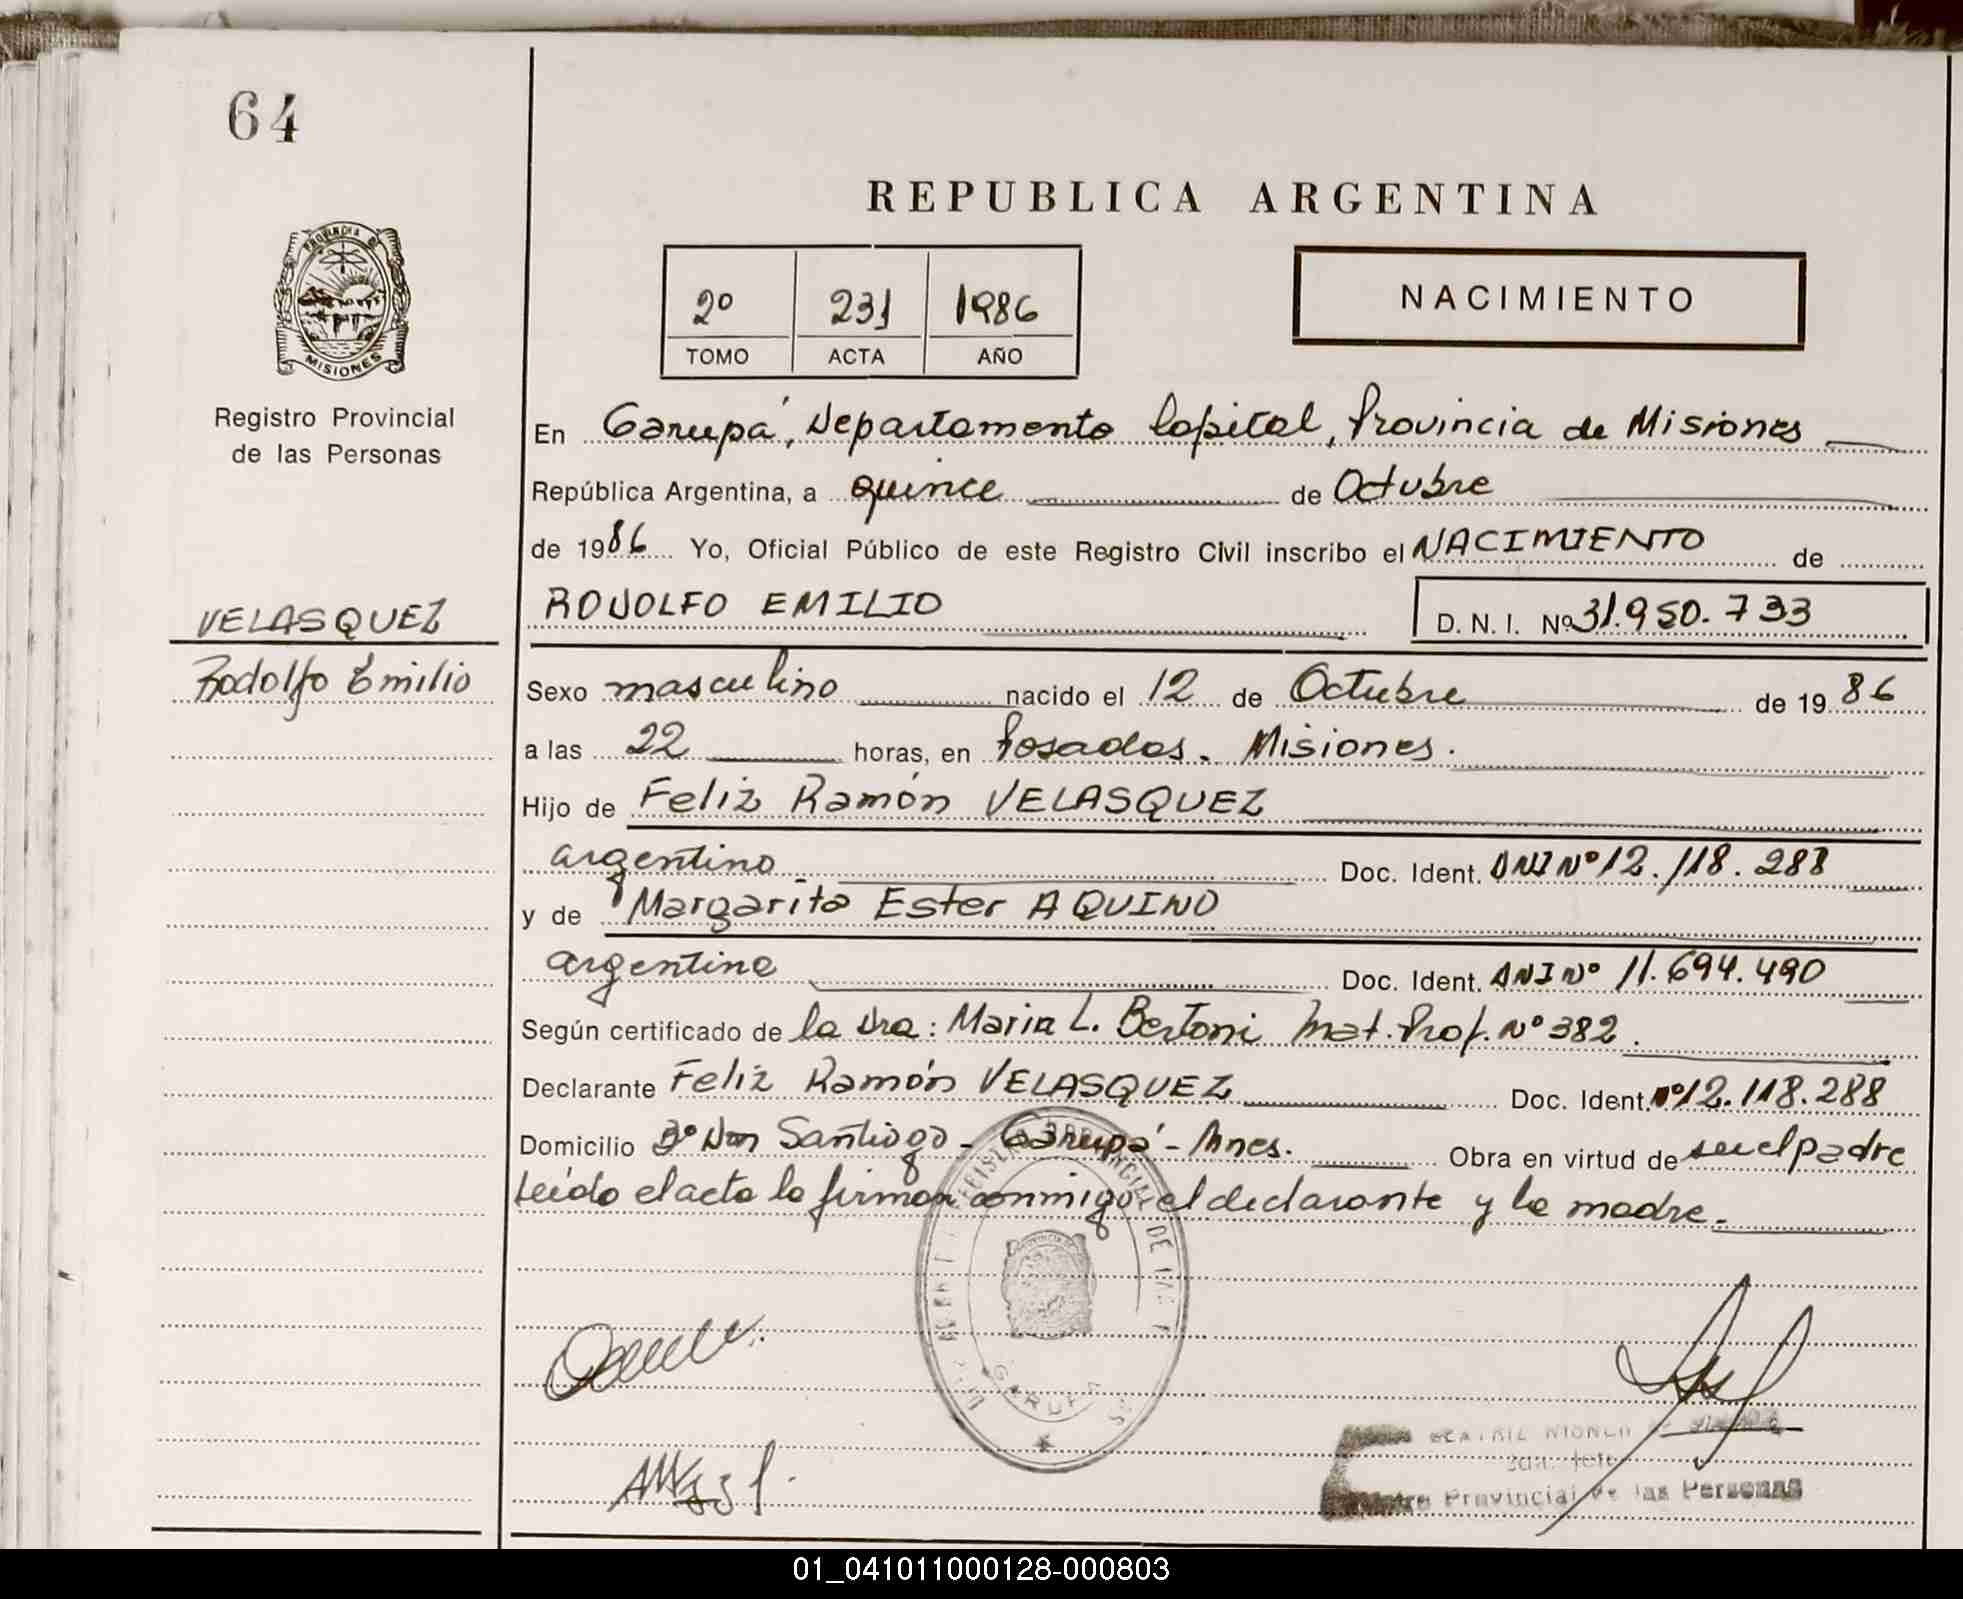 64
REPUBLICA ARGENTINA
PROVINCIA DE
MISIONES
Registro Provincial
de las Personas
2º 231 1986
TOMO ACTA AÑO
NACIMIENTO
En Garupá, Departamento Capital, Provincia de Misiones
República Argentina, a quince de Octubre
de 1986 Yo, Oficial Público de este Registro Civil inscribo el NACIMIENTO de
VELASQUEZ
Rodolfo Emilio
RODOLFO EMILIO D. N. I. Nº 31.950.733
Sexo masculino nacido el 12 de Octubre de 1986
a las 22 horas, en Posadas. Misiones.
Hijo de Feliz Ramón VELASQUEZ
argentino Doc. Ident. DNI Nº 12.118.288
y de Margarita Ester AQUINO
argentina Doc. Ident. DNI Nº 11.694.490
Según certificado de la Dra: Maria L. Bertoni Mat. Prof. Nº 382.
Declarante Feliz Ramón VELASQUEZ Doc. Ident. Nº 12.118.288
Domicilio Bº Don Santiago - Garupá - Mnes. Obra en virtud de ser el padre
Leído el acta la firman conmigo el declarante y la madre.
GARUPA
BEATRIZ
Provincial de las Personas
01_041011000128-000803